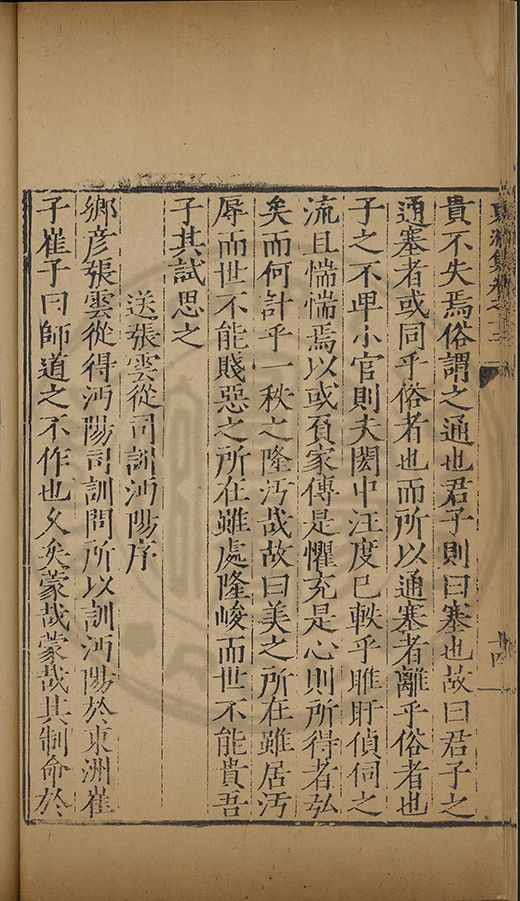 東洲集卷之十三
十四
貴不失焉俗謂之通也君子則曰塞也故曰君子之
通塞者或同乎俗者也而所以通塞者離乎俗者也
子之不卑小官則夫閎中汪度已軼乎睢盱偵伺之
流且惴惴焉以或有家傳是懼充是心則所得者弘
矣而何計乎一秩之隆污哉故曰美之所在雖居污
辱而世不能賤惡之所在雖處隆峻而世不能貴吾
子其試思之
送張雲從司訓沔陽序
鄉彥張雲從得沔陽司訓問所以訓沔陽於東洲崔
子崔子曰師道之不作也久矣蒙哉蒙哉其制命於